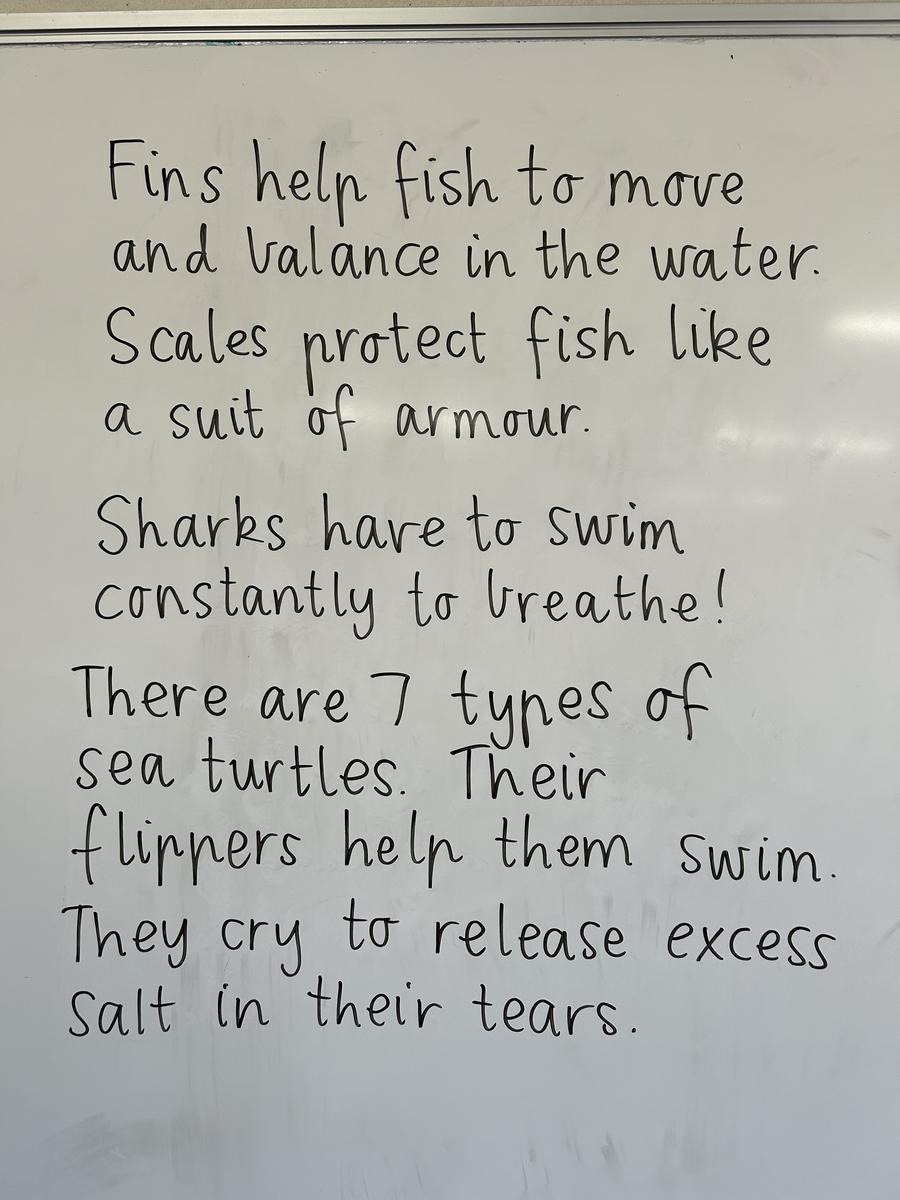 Fins help fish to move
and balance in the water.
Scales protect fish like
a suit of armour.
Sharks have to swim
constantly to breathe!
There are 7 types of
sea turtles. Their
flippers help them swim.
They cry to release excess
salt in their tears.